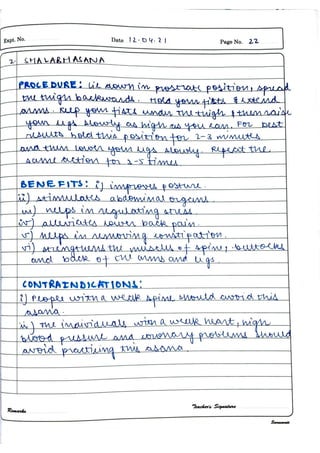 Expt. No.
Date 12.04.21
Page No. 22
2. SHALABHASANA
PROCEDURE: Lie down in prostrate position, spread
the thigh backwards. Hold your fists & extend
arms. Keep your fists under the thigh & then raise
your legs slowly as high as you can. For best
results hold this position for 2-3 minutes
and then lower your legs slowly. Repeat the
same action for 3-5 times
BENEFITS: i) improves posture.
ii) stimulates abdominal organs.
iii) helps in regulating stress.
iv) alleviates lower back pain.
v) helps in removing constipation.
vi) strengthens the muscles of spine, buttocks
and back of the arms and legs.
CONTRAINDICATIONS:
i) People with a weak spine should avoid this
asana.
ii) The individuals with a weak heart, high
blood pressure and coronary problems should
avoid practicing this asana.
Teacher's Signature
Remarks